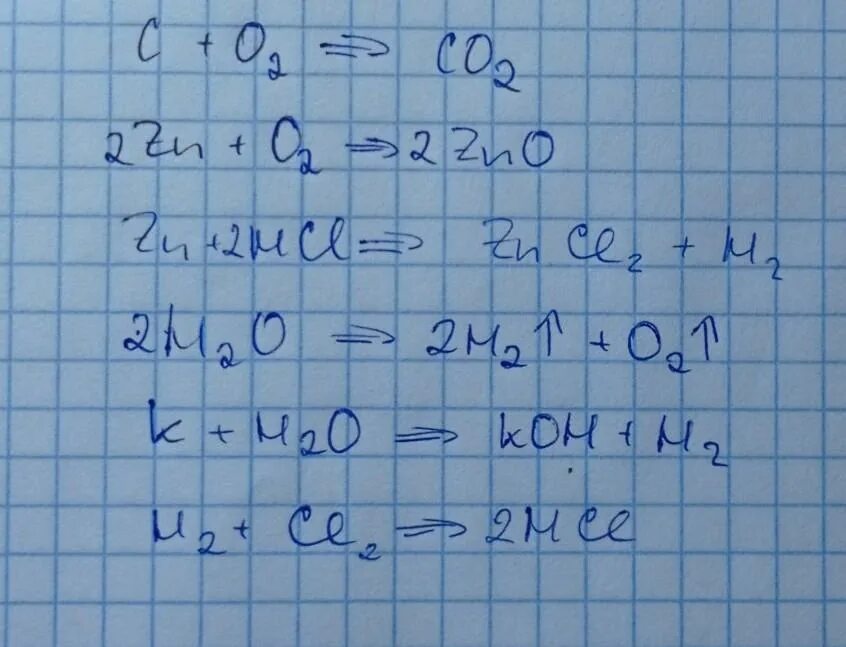 C + O₂ ⇒ CO₂
2Zn + O₂ ⇒ 2ZnO
Zn + 2HCl ⇒ ZnCl₂ + H₂
2H₂O ⇒ 2H₂↑ + O₂↑
K + H₂O ⇒ KOH + H₂
H₂ + Cl₂ ⇒ 2HCl